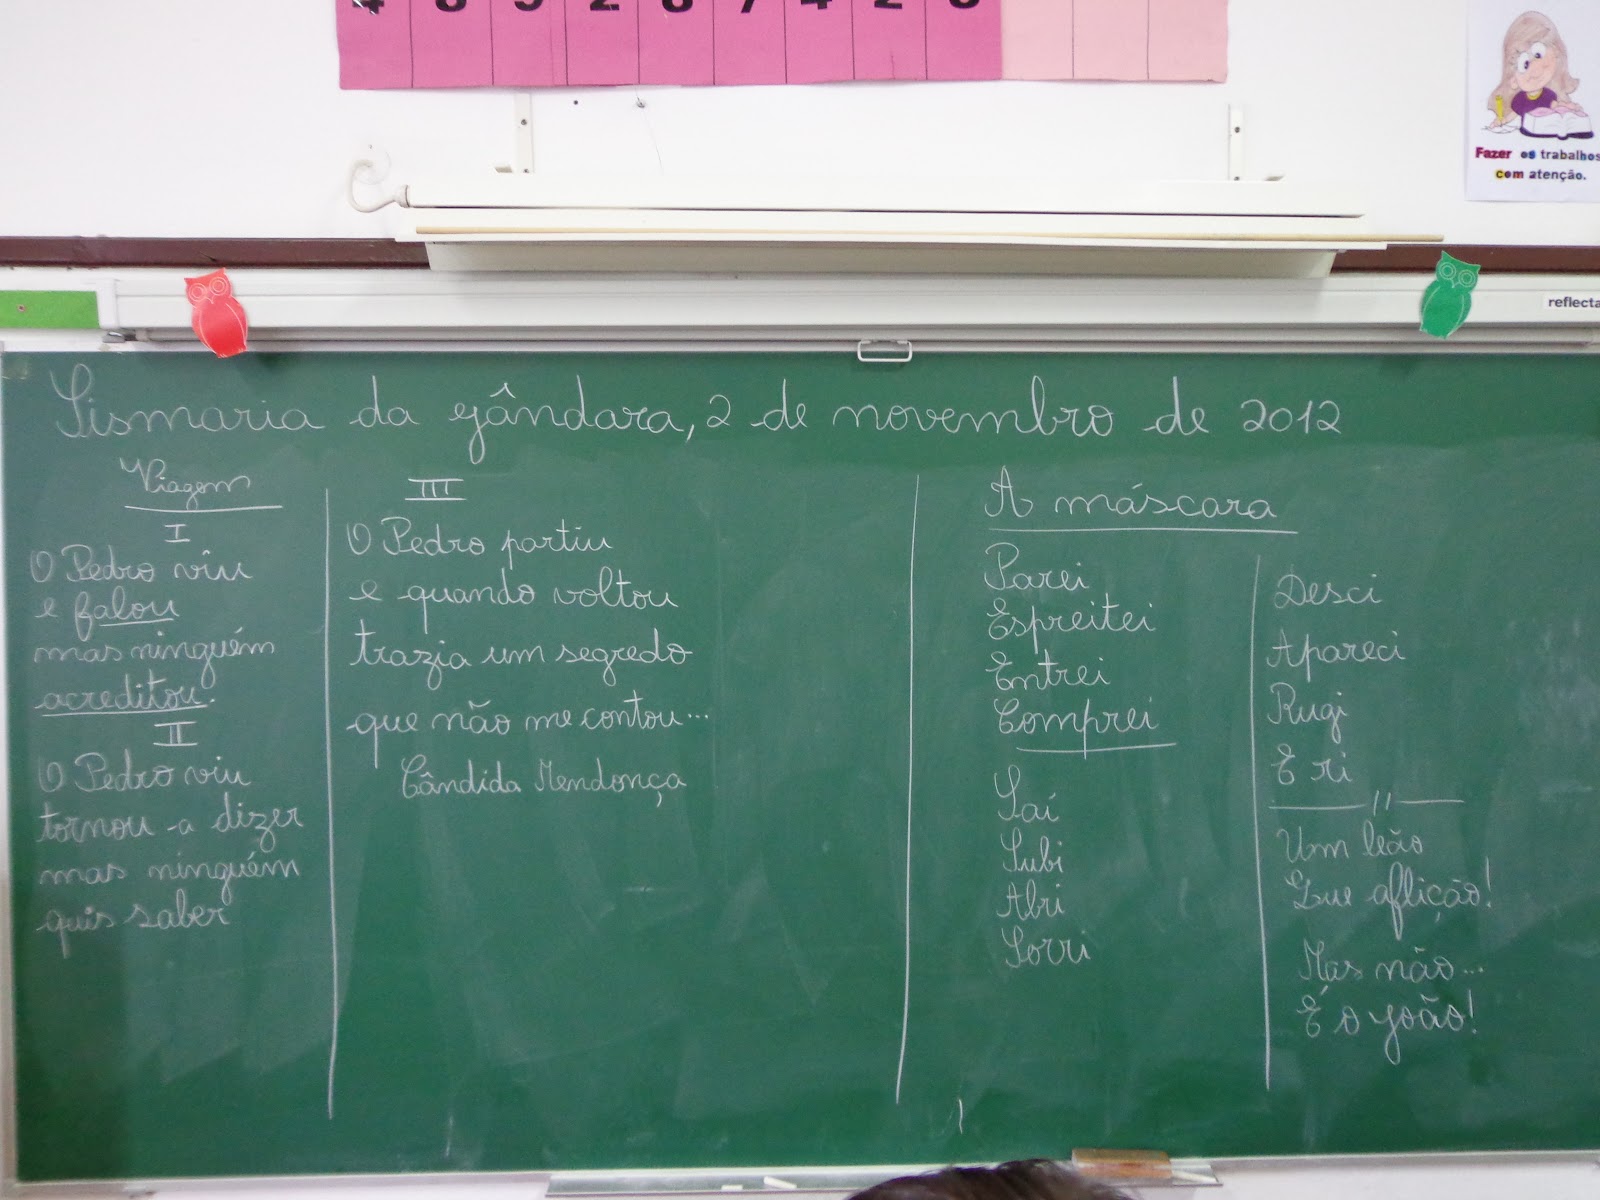 Fazer os trabalhos
com atenção.
reflecta
Sismaria da gândara, 2 de novembro de 2012
Viagem
I
O Pedro viu
e falou
mas ninguém
acreditou.
II
O Pedro viu
tornou-a dizer
mas ninguém
quis saber
III
O Pedro partiu
e quando voltou
trazia um segredo
que não me contou...
Cândida Mendonça
A máscara
Parei
Espreitei
Entrei
Comprei
Saí
Subi
Abri
Sorri
Desci
Apareci
Rugi
E ri
Um leão
Que aflição!
Mas não...
É o João!